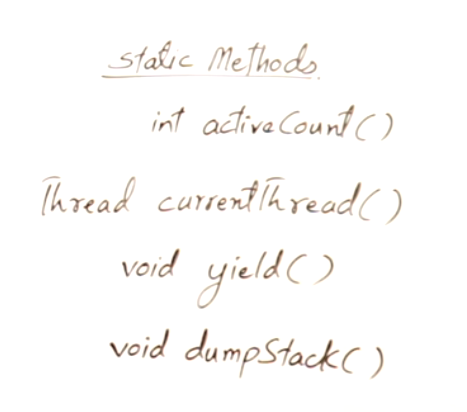 Static Methods.
int activeCount()
Thread currentThread()
void yield()
void dumpStack()